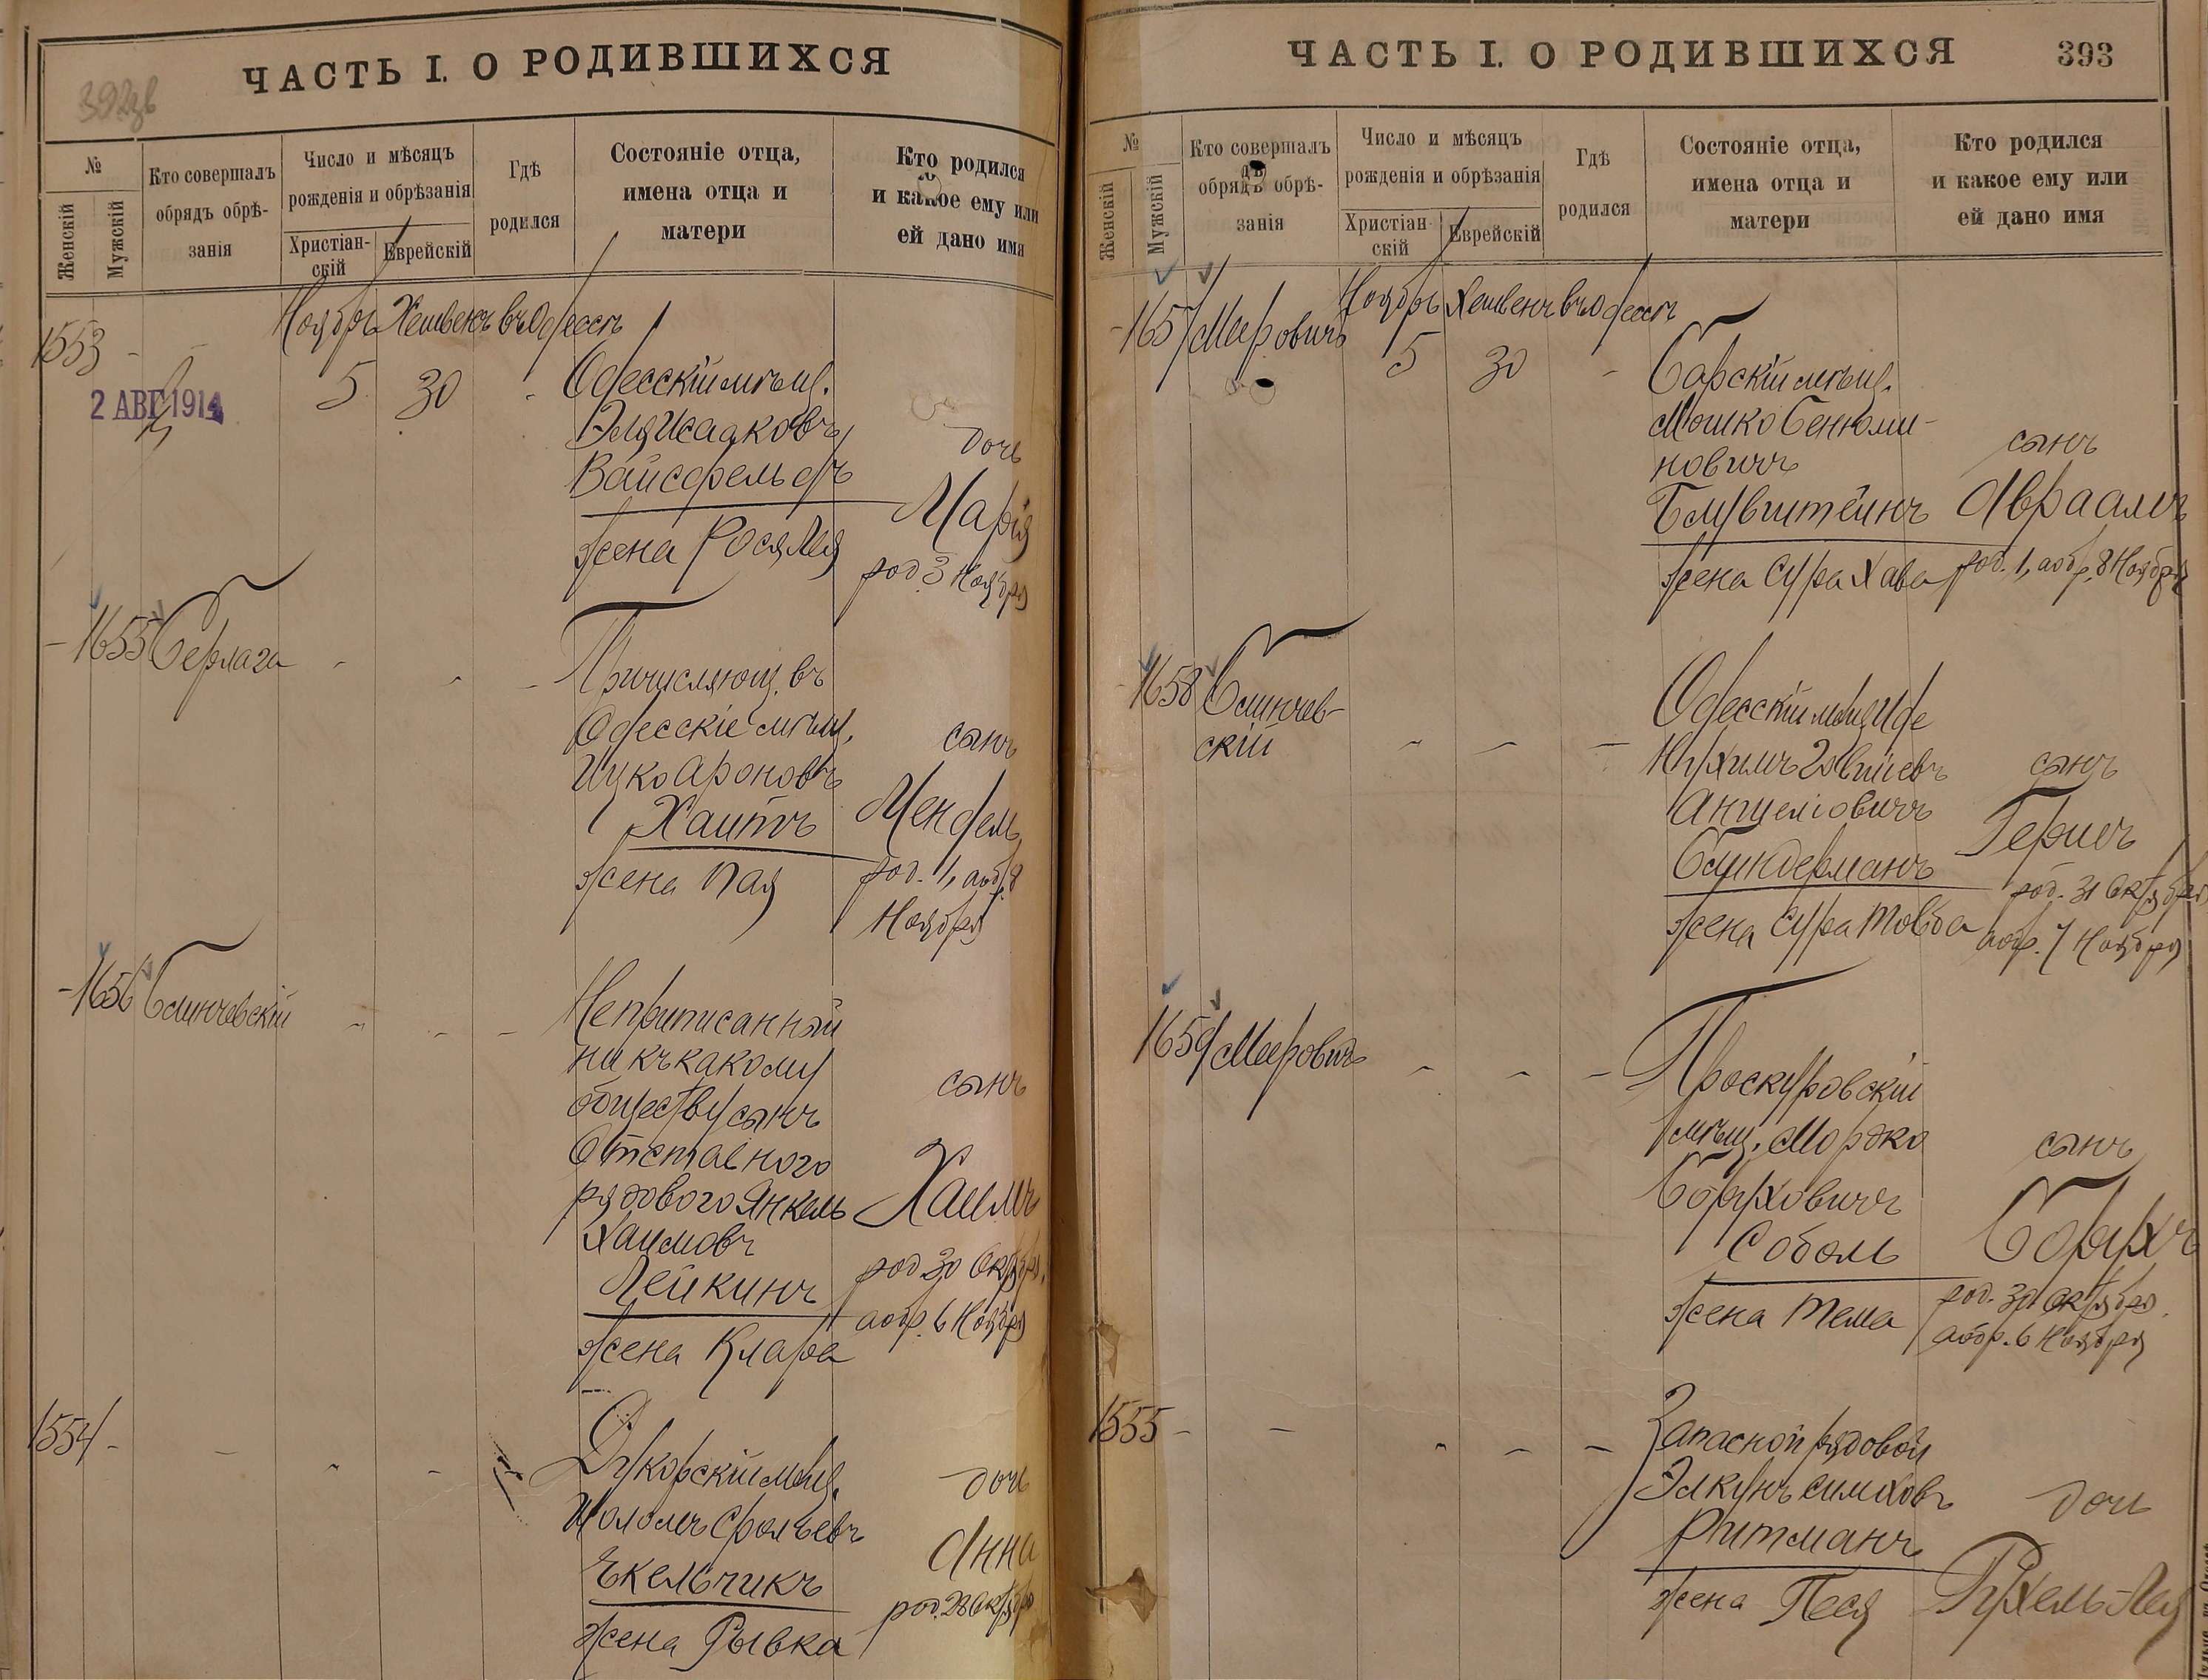 ЧАСТЬ I. О РОДИВШИХСЯ
№
Женскій
Мужскій
Кто совершалъ
обрядъ обрѣ-
занія
Число и мѣсяцъ
рожденія и обрѣзанія
Христіан-
скій
Еврейскій
Гдѣ
родился
Состояніе отца,
имена отца и
матери
Кто родился
и какое ему или
ей дано имя
1553 - -
Ноябрь Хешвенъ въ Одессѣ
2 АВГ 1914
5 30
Одесскій мѣщ.
Эля Исааковъ
Вайсфельдъ
жена Рося Лея
дочь
Марія
род. 3 Ноября
1655 Берлага
Причисляющ. въ
Одесскіе мѣщ.
Ицко Ароновъ
Хаитъ
жена Пая
сынъ
Мендель
род. 1, а обр. 8
Ноября
1656 Блинчевскій
Неприписанный
ни къ какому
обществу сынъ
Отставного
рядового Янкель
Хаимовъ
Лейкинъ
жена Клара
сынъ
Хаимъ
род. 30 Октября,
а обр. 6 Ноября
1554 -
мѣщ.
Шоломъ Срольевъ
Екельчикъ
жена Рывка
дочь
Анна
род. 28 Октября
ЧАСТЬ I. О РОДИВШИХСЯ 393
№
Женскій
Мужскій
Кто совершалъ
обрядъ обрѣ-
занія
Число и мѣсяцъ
рожденія и обрѣзанія
Христіан-
скій
Еврейскій
Гдѣ
родился
Состояніе отца,
имена отца и
матери
Кто родился
и какое ему или
ей дано имя
1657 Меировичъ
Ноябрь Хешвенъ въ Одессѣ
5 30
Барскій мѣщ.
Мошко Бенюми-
новичъ
жена Сура Хава
сынъ
Авраамъ
род. 1, а обр. 8 Ноября
1658 Блинчев-
скій
Одесскій мѣщ.
Аншеліовичъ
Блиндерманъ
жена Сура Товба
сынъ
Гершъ
род. 31 Октября
а обр. 7 Ноября
1659 Меировичъ
Проскуровскій
мѣщ. Мордко
Боруховичъ
Соболь
жена Тема
сынъ
Борухъ
род. 30 Октября,
а обр. 6 Ноября
1555 -
Запасной рядовой
Элкунъ Симховъ
Ритманъ
жена Песя
дочь
Рухель-Лея